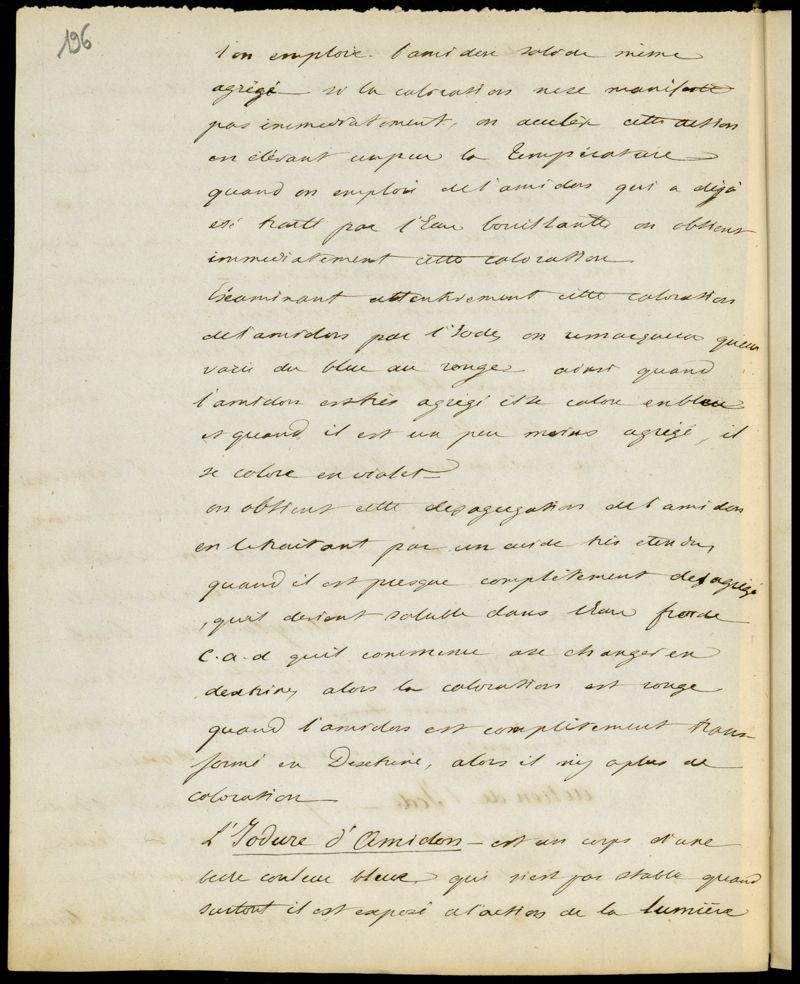 196
l'on emploie l'amidon solide même
agrégé — si la coloration ne se manifeste
pas immediatement, on accélère cette action
en élévant un peu la Température
quand on emploi de l'amidon qui a déjà
eté traité par l'Eau bouillante on obtient
immediatement cette coloration
Examinant attentivement cette coloration
de l'amidon par l'Iode, on remarquera qu'elle
varie du bleu au rouge ainsi quand
l'amidon est très agrégé il se colore en bleu
et quand il est un peu moins agrégé, il
se colore en violet —
on obtient cette desagregation de l'amidon
en le traitant par un acide très etendu,
quand il est presque complètement desagrégé
, qu'il devient soluble dans l'Eau froide
c. a. d qu'il commence a se changer en
dextrine, alors la coloration est rouge
quand l'amidon est complètement trans-
formé en Dextrine, alors il n'y a plus de
coloration —
L'Iodure d'Amidon — est un corps d'une
belle couleur bleue, qui n'est pas stable quand
surtout il est exposé a l'action de la lumière